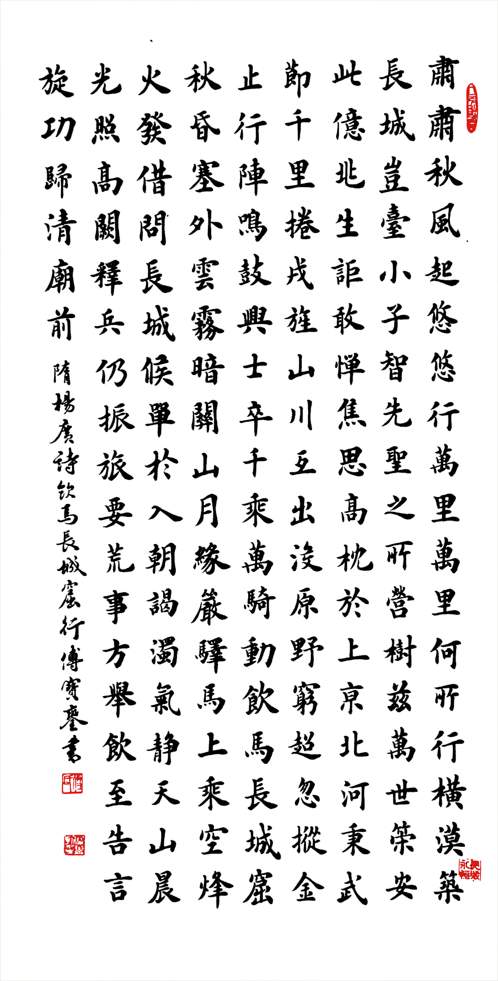 肅肅秋風起悠悠行萬里萬里何所行橫漠築
長城豈臺小子智先聖之所營樹茲萬世策安
此億兆生詎敢憚焦思高枕於上京北河秉武
節千里捲戎旌山川互出沒原野窮超忽摐金
止行陣鳴鼓興士卒千乘萬騎動飲馬長城窟
秋昏塞外雲霧暗關山月緣巖驛馬上乘空烽
火發借問長城候單於入朝謁濁氣靜天山晨
光照高闕釋兵仍振旅要荒事方舉飲至告言
旋功歸清廟前
隋楊廣詩飲馬長城窟行傅寶書